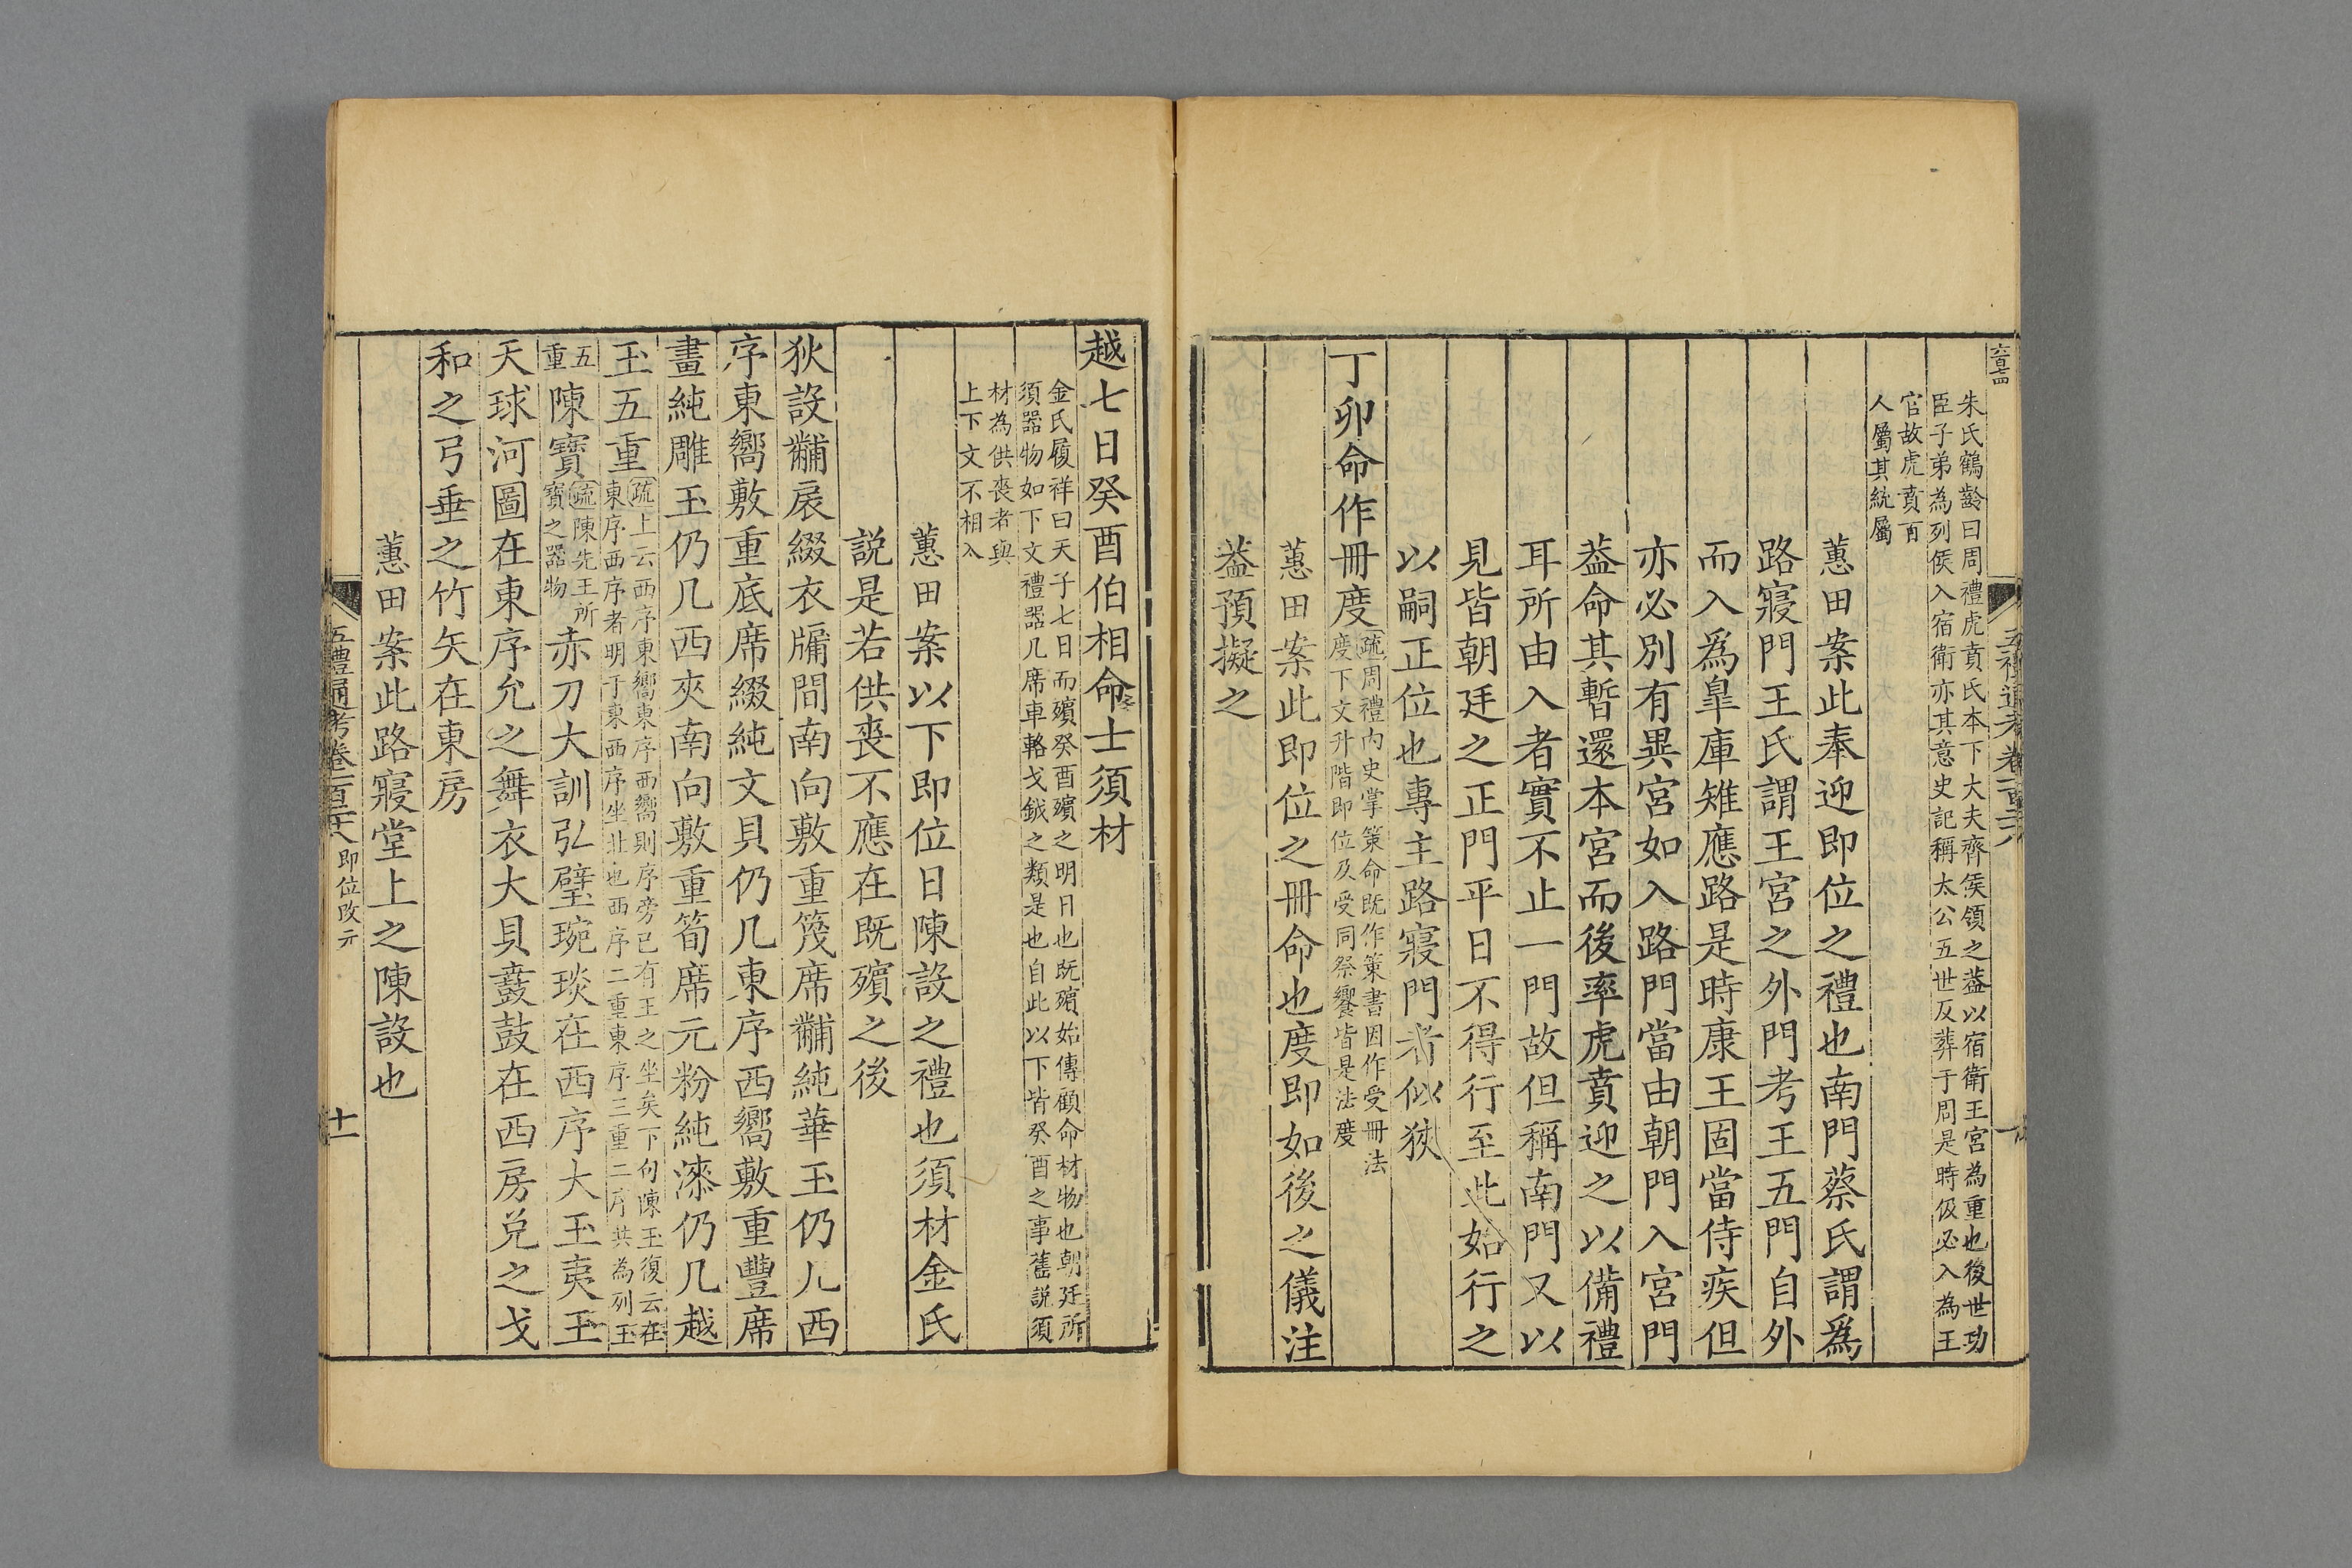 朱氏鶴齡曰周禮虎賁氏本下大夫齊侯領之葢以宿衛王宮為重也後世功
臣子弟為列侯入宿衛亦其意史記稱太公五世反葬于周是時伋必入為王
官故虎賁百
人屬其統屬
蕙田案此奉迎即位之禮也南門蔡氏謂爲
路寢門王氏謂王宮之外門考王五門自外
而入爲臯庫雉應路是時康王固當侍疾但
亦必別有異宮如入路門當由朝門入宮門
葢命其暫還本宮而後率虎賁迎之以備禮
耳所由入者實不止一門故但稱南門又以
見皆朝廷之正門平日不得行至此始行之
以嗣正位也專主路寢門者似狹
丁卯命作冊度
疏周禮內史掌策命既作策書因作受冊法
度下文升階即位及受同祭饗皆是法度
蕙田案此即位之冊命也度即如後之儀注
葢預擬之
越七日癸酉伯相命士須材
金氏履祥曰天子七日而殯癸酉殯之明日也既殯始傳顧命材物也朝廷所
須器物如下文禮器几席車輅戈鉞之類是也自此以下皆癸酉之事舊説須
材為供喪者與
上下文不相入
蕙田案以下即位日陳設之禮也須材金氏
説是若供喪不應在既殯之後
狄設黼扆綴衣牖間南向敷重篾席黼純華玉仍几西
序東嚮敷重底席綴純文貝仍几東序西嚮敷重豐席
畫純雕玉仍几西夾南向敷重筍席元粉純漆仍几越
玉五重
疏上云西序東嚮東序西嚮則序旁已有王之坐矣下句陳玉復云在
東序西序者明于東西序坐北也西序二重東序三重二序共為列玉
五
重
陳寶
疏陳先王所
寶之器物
赤刀大訓弘璧琬琰在西序大玉夷玉
天球河圖在東序允之舞衣大貝鼖鼓在西房兌之戈
和之弓垂之竹矢在東房
蕙田案此路寢堂上之陳設也
五禮通考卷一百二十八
即位改元
十一